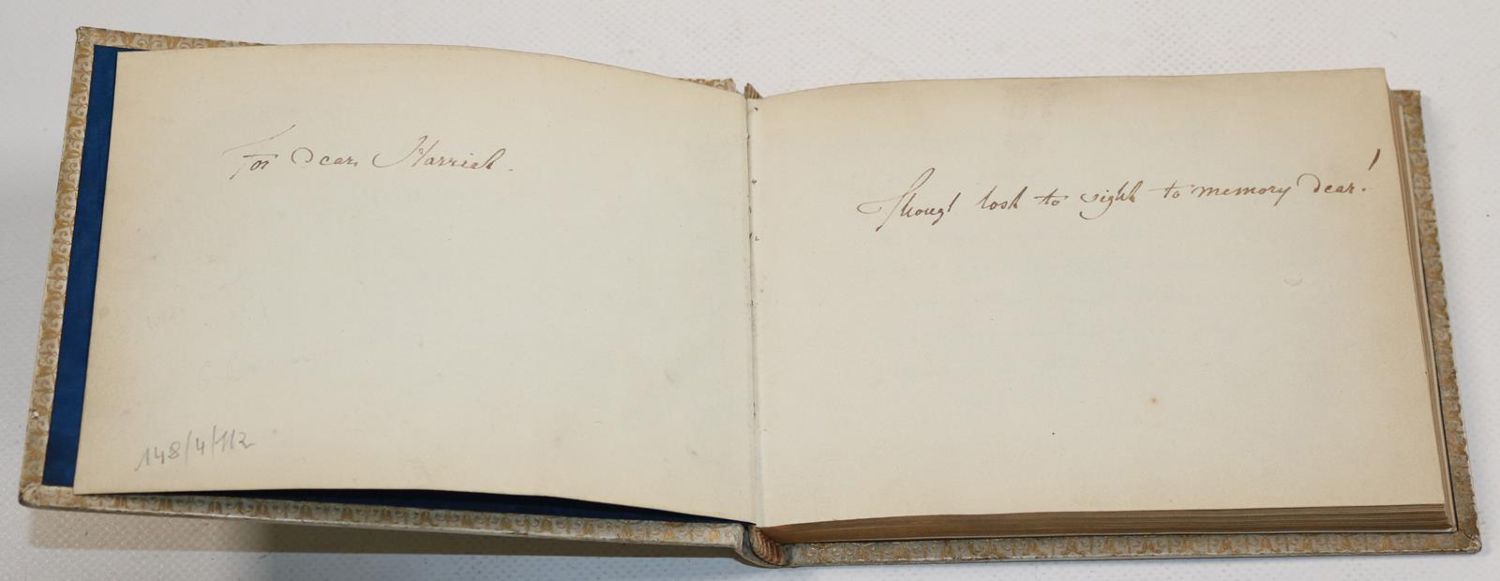 For dear Harriet.
Though lost to sight to memory dear!
148/4/112